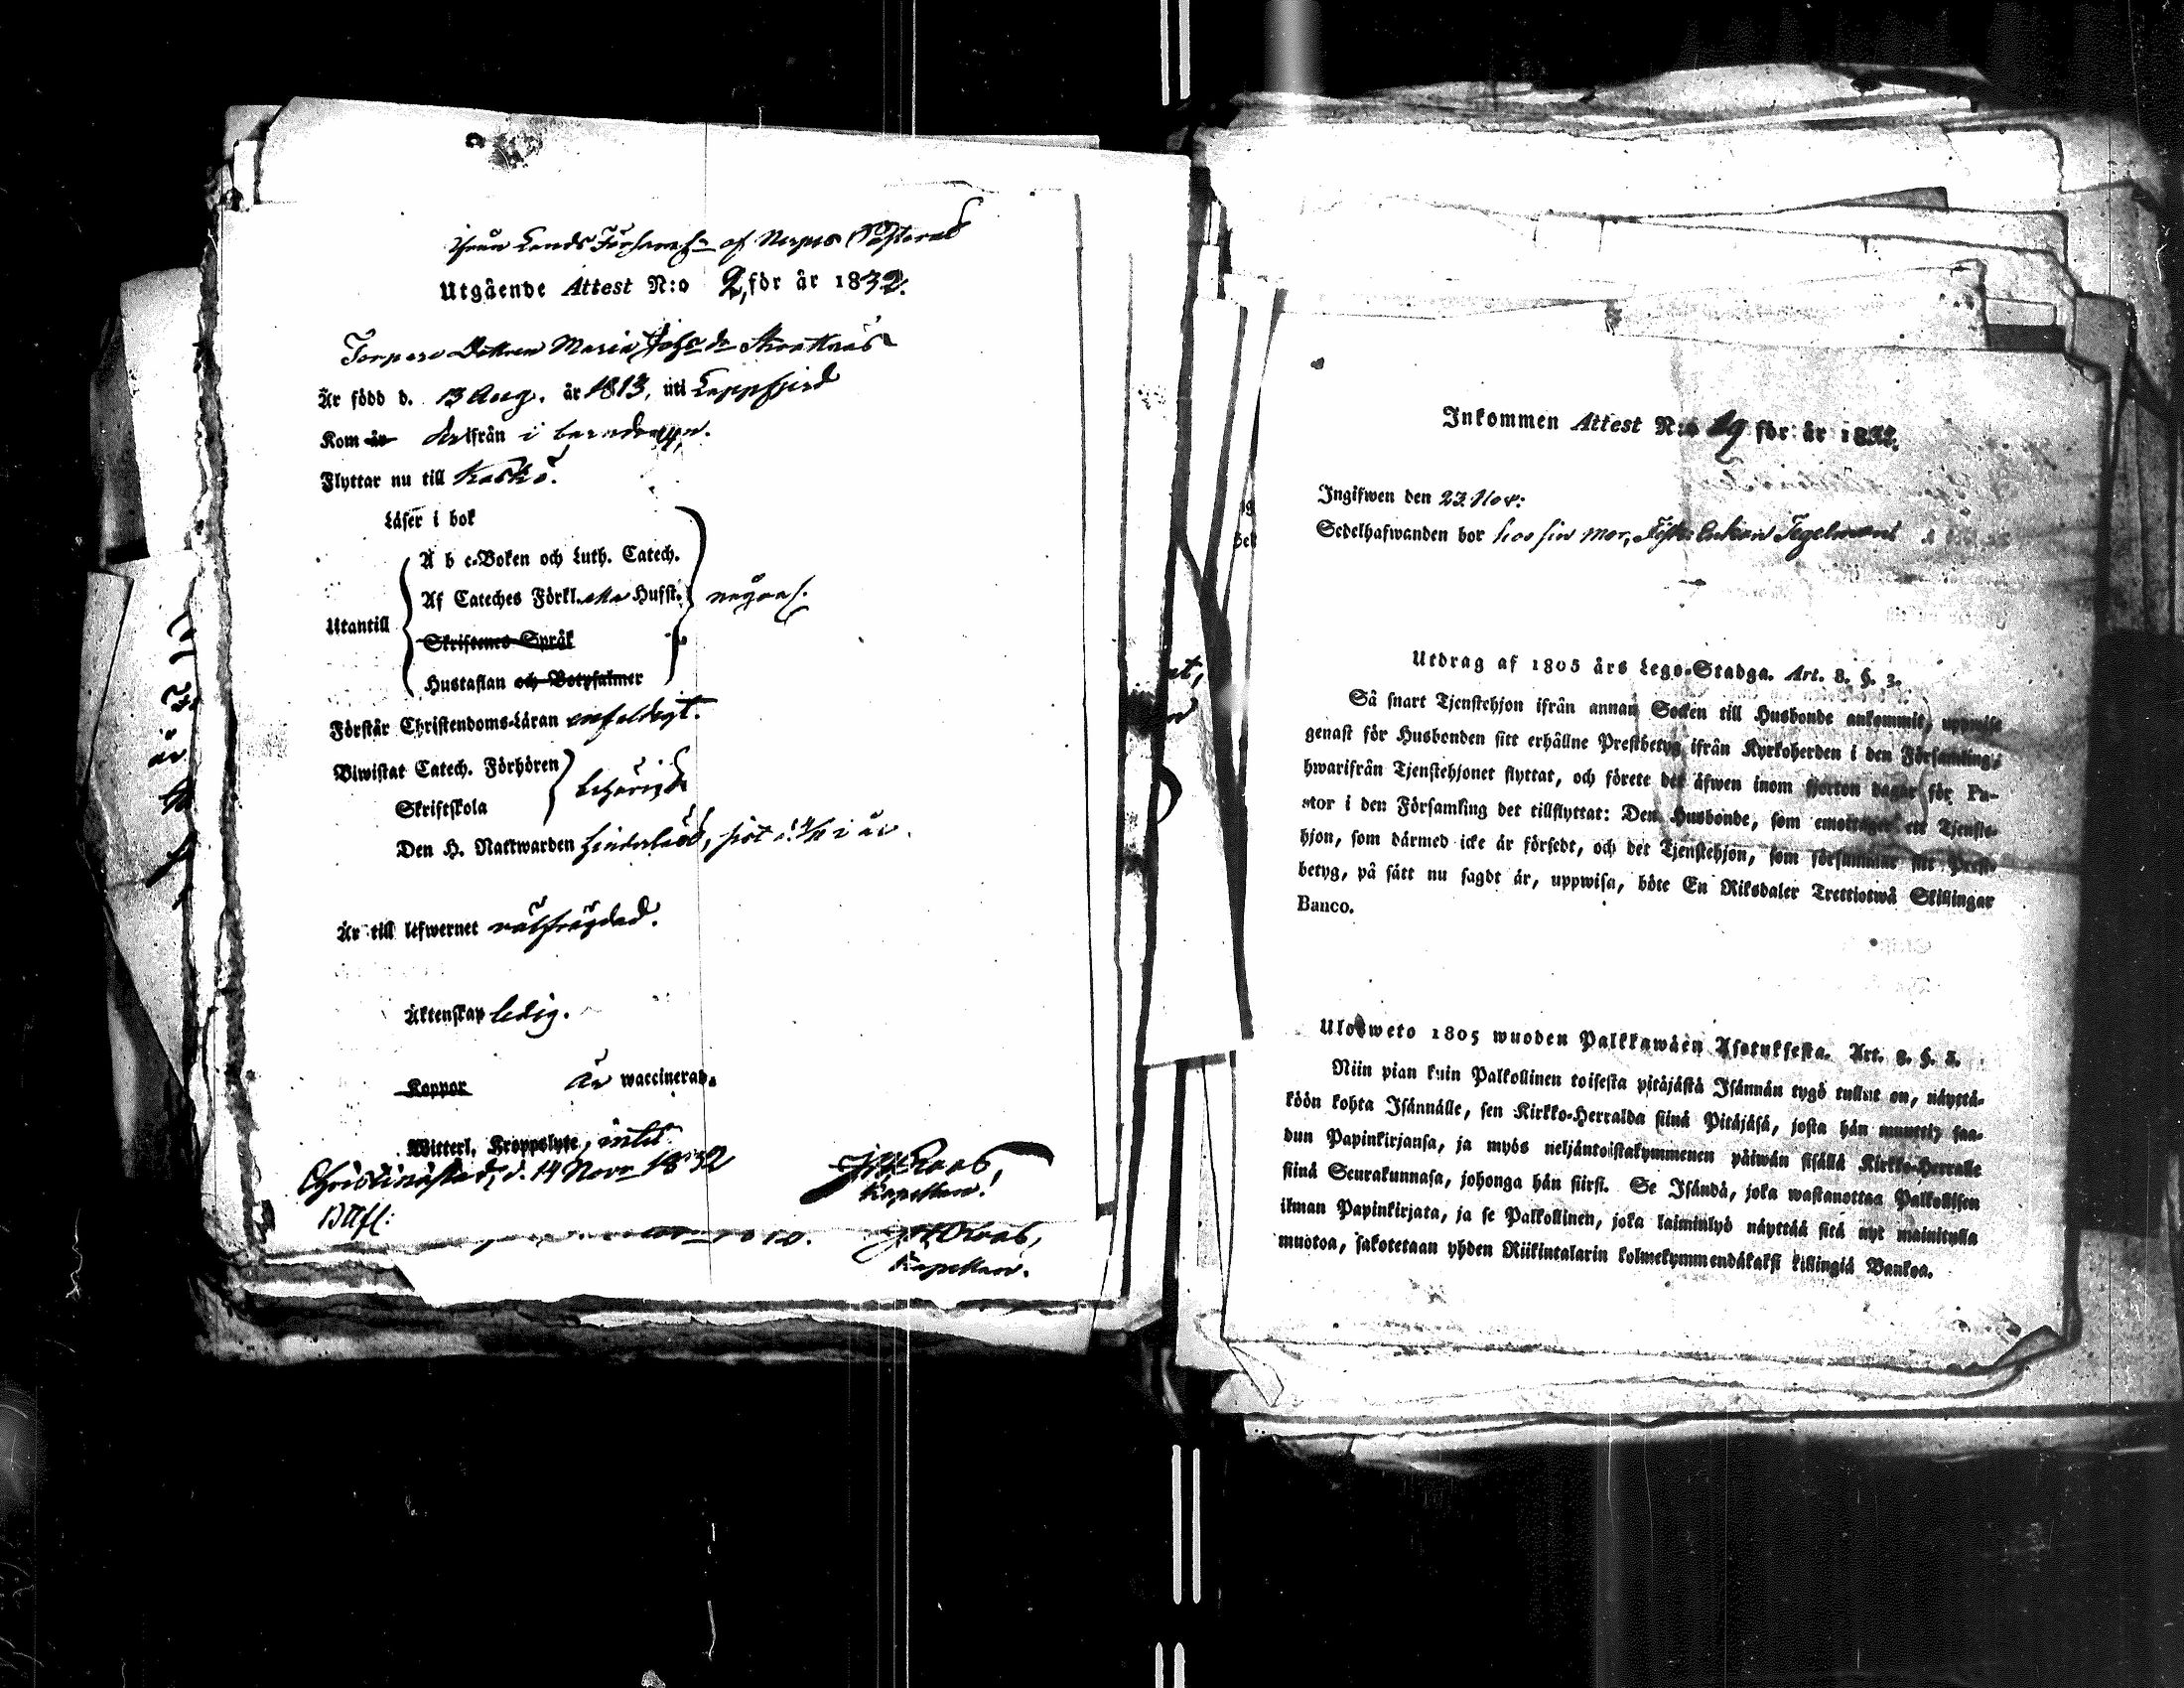 ifrån Lands Församl:n af Nerpes Pastorat
Utgående Attest N:o 2, för år 1832.
Torpare Dottren Maria Johs dr
Är född d. 13 Aug. år 1813, uti Lappfjerd
Kom är derifrån i barndomen.
Flyttar nu till Kaskö.
Läser i bok
A b c-Boken och Luth. Catech.
Af Cateches Förkl. Husst.
någorl.
Utantill
Skriftenes Språk
Hustaflan och Botpsalmer
Förstår Christendoms-Läran enfaldigt.
Biwistat Catech. Förhören
Skriftskola
behörigt
Den H. Nattwarden hinderlöst, sist i år.
Är till lefwernet välfrägdad.
Äktenskap ledig.
Koppor är waccinerad.
Witterl. Kroppslyte, intet
Christinestad, d. 14 Nov. 1832
Kapellan.
Kapellan.
Inkommen Attest N:o 29 för år 1832.
Ingifwen den 23. Nov:
Sedelhafwanden bor hos sin mor, Enkan Tegelman
Utdrag af 1805 års Lego-Stadga. Art. 8. §. 3.
Så snart Tjenstehjon ifrån annan Socken till Husbonde ankommit, uppwise
genast för Husbonden sitt erhållne Prestbetyg ifrån Kyrkoherden i den Församling,
hwarifrån Tjenstehjonet flyttat, och förete det äfwen inom fjorton dagar för Pa-
stor i den Församling det tillflyttat: Den Husbonde, som emottager ett Tjenste-
hjon, som därmed icke är försedt, och det Tjenstehjon, som försummar sitt Prest-
betyg, på sätt nu sagdt är, uppwisa, böte En Riksdaler Trettiotwå Skillingar
Banco.
Ulosweto 1805 wuoden Palkkawäen Asetuksesta. Art. 8. §. 3.
Niin pian kuin Palkollinen toisesta pitäjästä Isännän tygö tullut on, näyttä-
köön kohta Isännälle, sen Kirkko-Herralda siinä Pitäjäsä, josta hän muutti, saa-
dun Papinkirjansa, ja myös neljäntoistakymmenen päiwän sisällä Kirkko-Herralle
siinä Seurakunnasa, johonga hän siirsi. Se Isändä, joka wastanottaa Palkollisen
ilman Papinkirjata, ja se Palkollinen, joka laiminlyö näyttää sitä nyt mainitulla
muotoa, sakotetaan yhden Riikintalarin kolmekymmendäkaksi killingiä Bankoa.